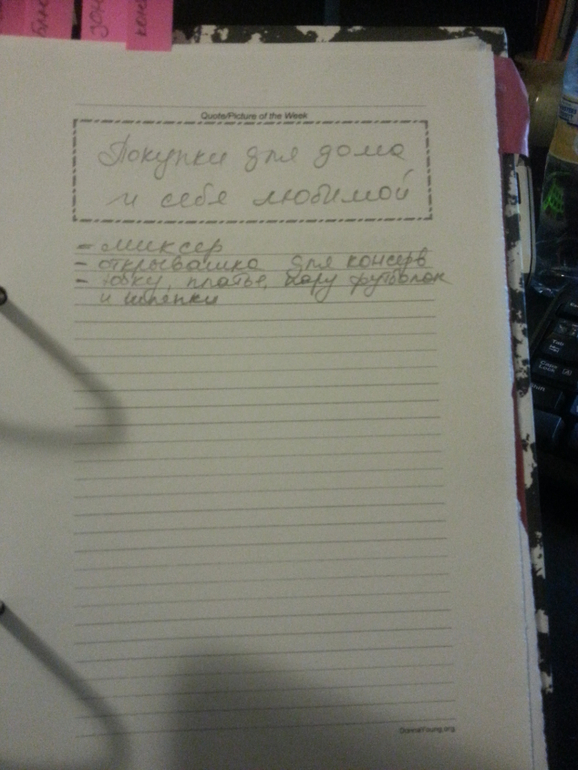 Quote/Picture of the Week
Покупки для дома
и себе любимой
- миксер
- открывашка для консерв
- юбку, платье, пару футболок
и шлепки
DonnaYoung.org